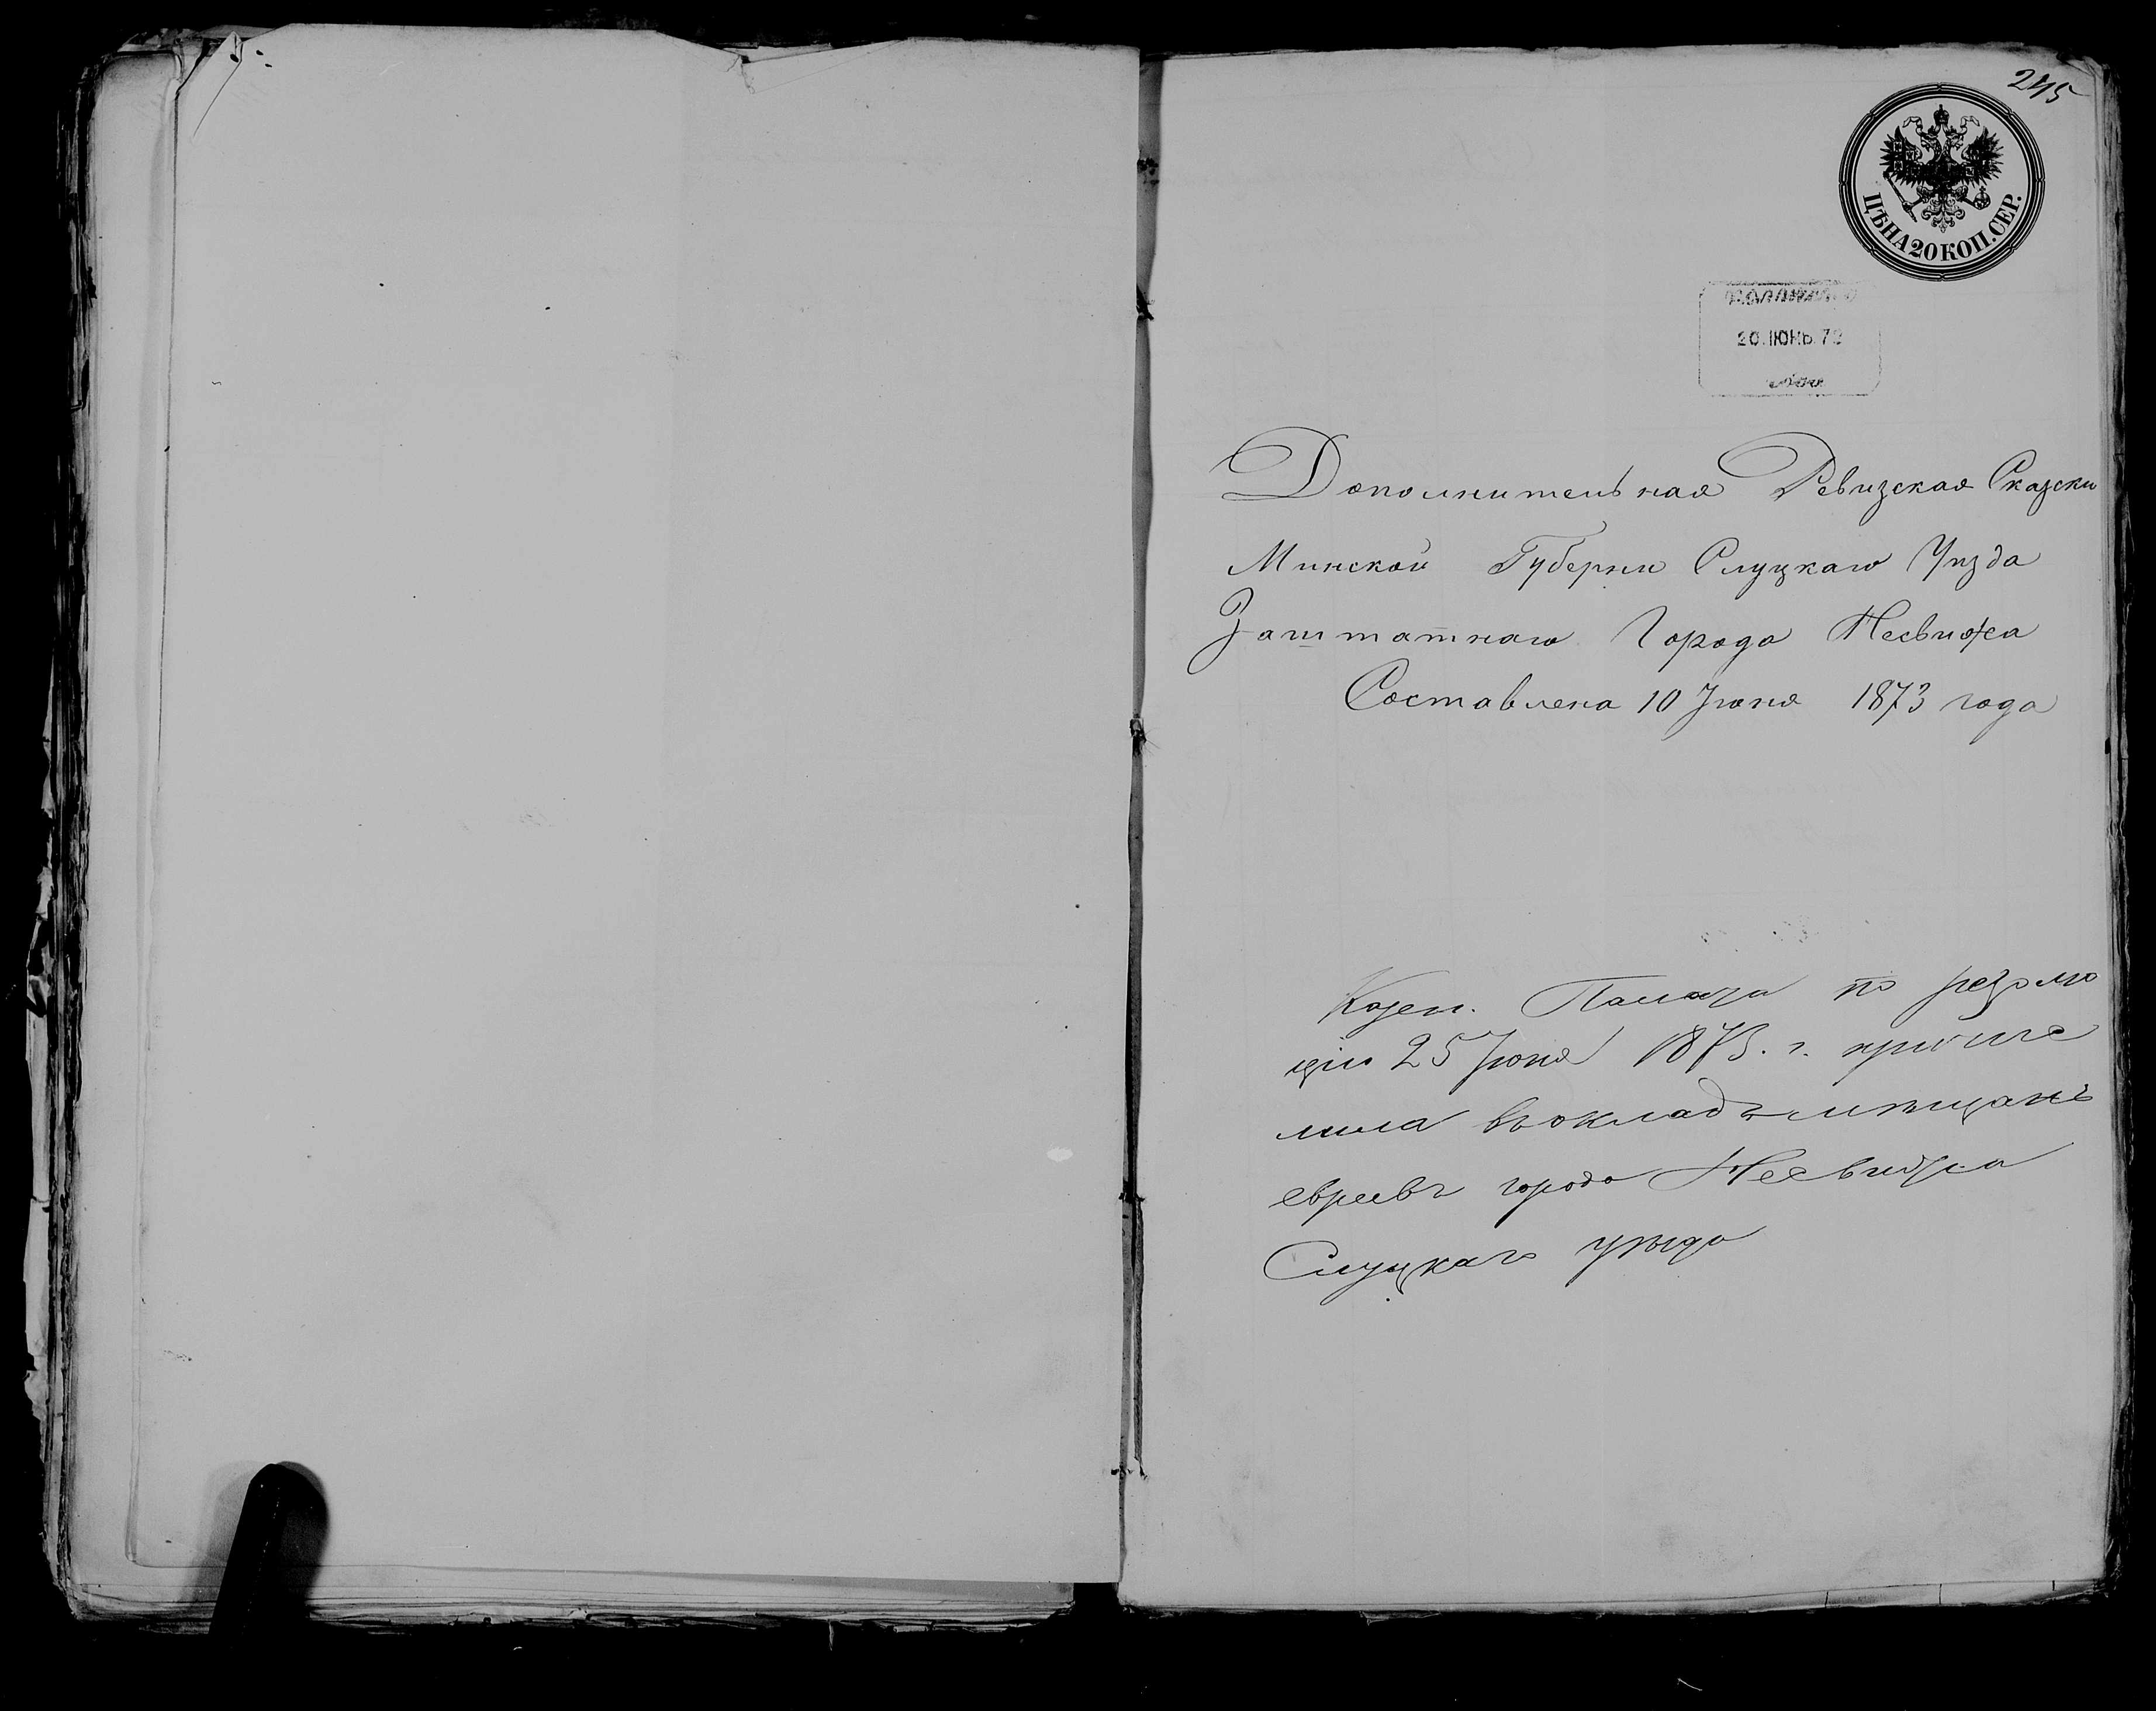 245
ЦѢНА 20 КОП. СЕР.
20. ІЮНЬ. 73
Дополнительная Ревизская Сказски
Минской Губерни Слуцкаго Уизда
Заштатнаго Города Несвижа
Составлена 10 Іюня 1873 года
Казен. Палата по резолю
ціи 25 Іюня 1873. г. причис
лила въ окладъ мѣщанъ
евреевъ города Несвижа
Слуцкаго уѣзда